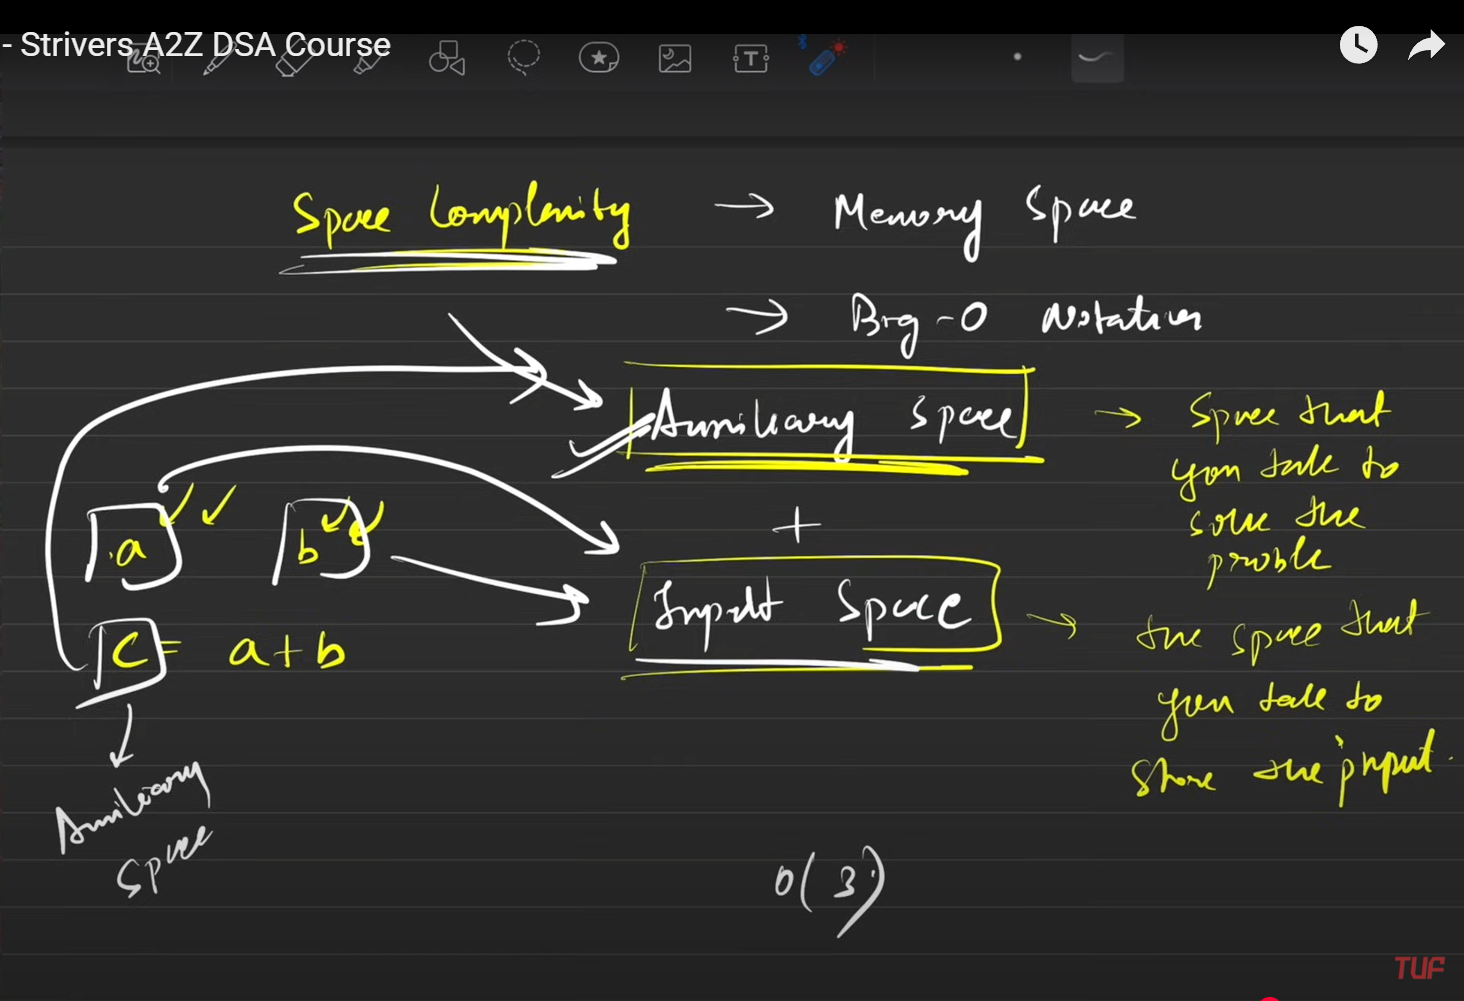 - Strivers A2Z DSA Course
T
Space Complexity → Memory Space
→ Big-O Notation
Auxiliary Space → Space that
you take to
solve the
proble
+
a b
Input Space → the space that
you take to
store the input.
c = a+b
Auxiliary
Space
O(3)
TUF